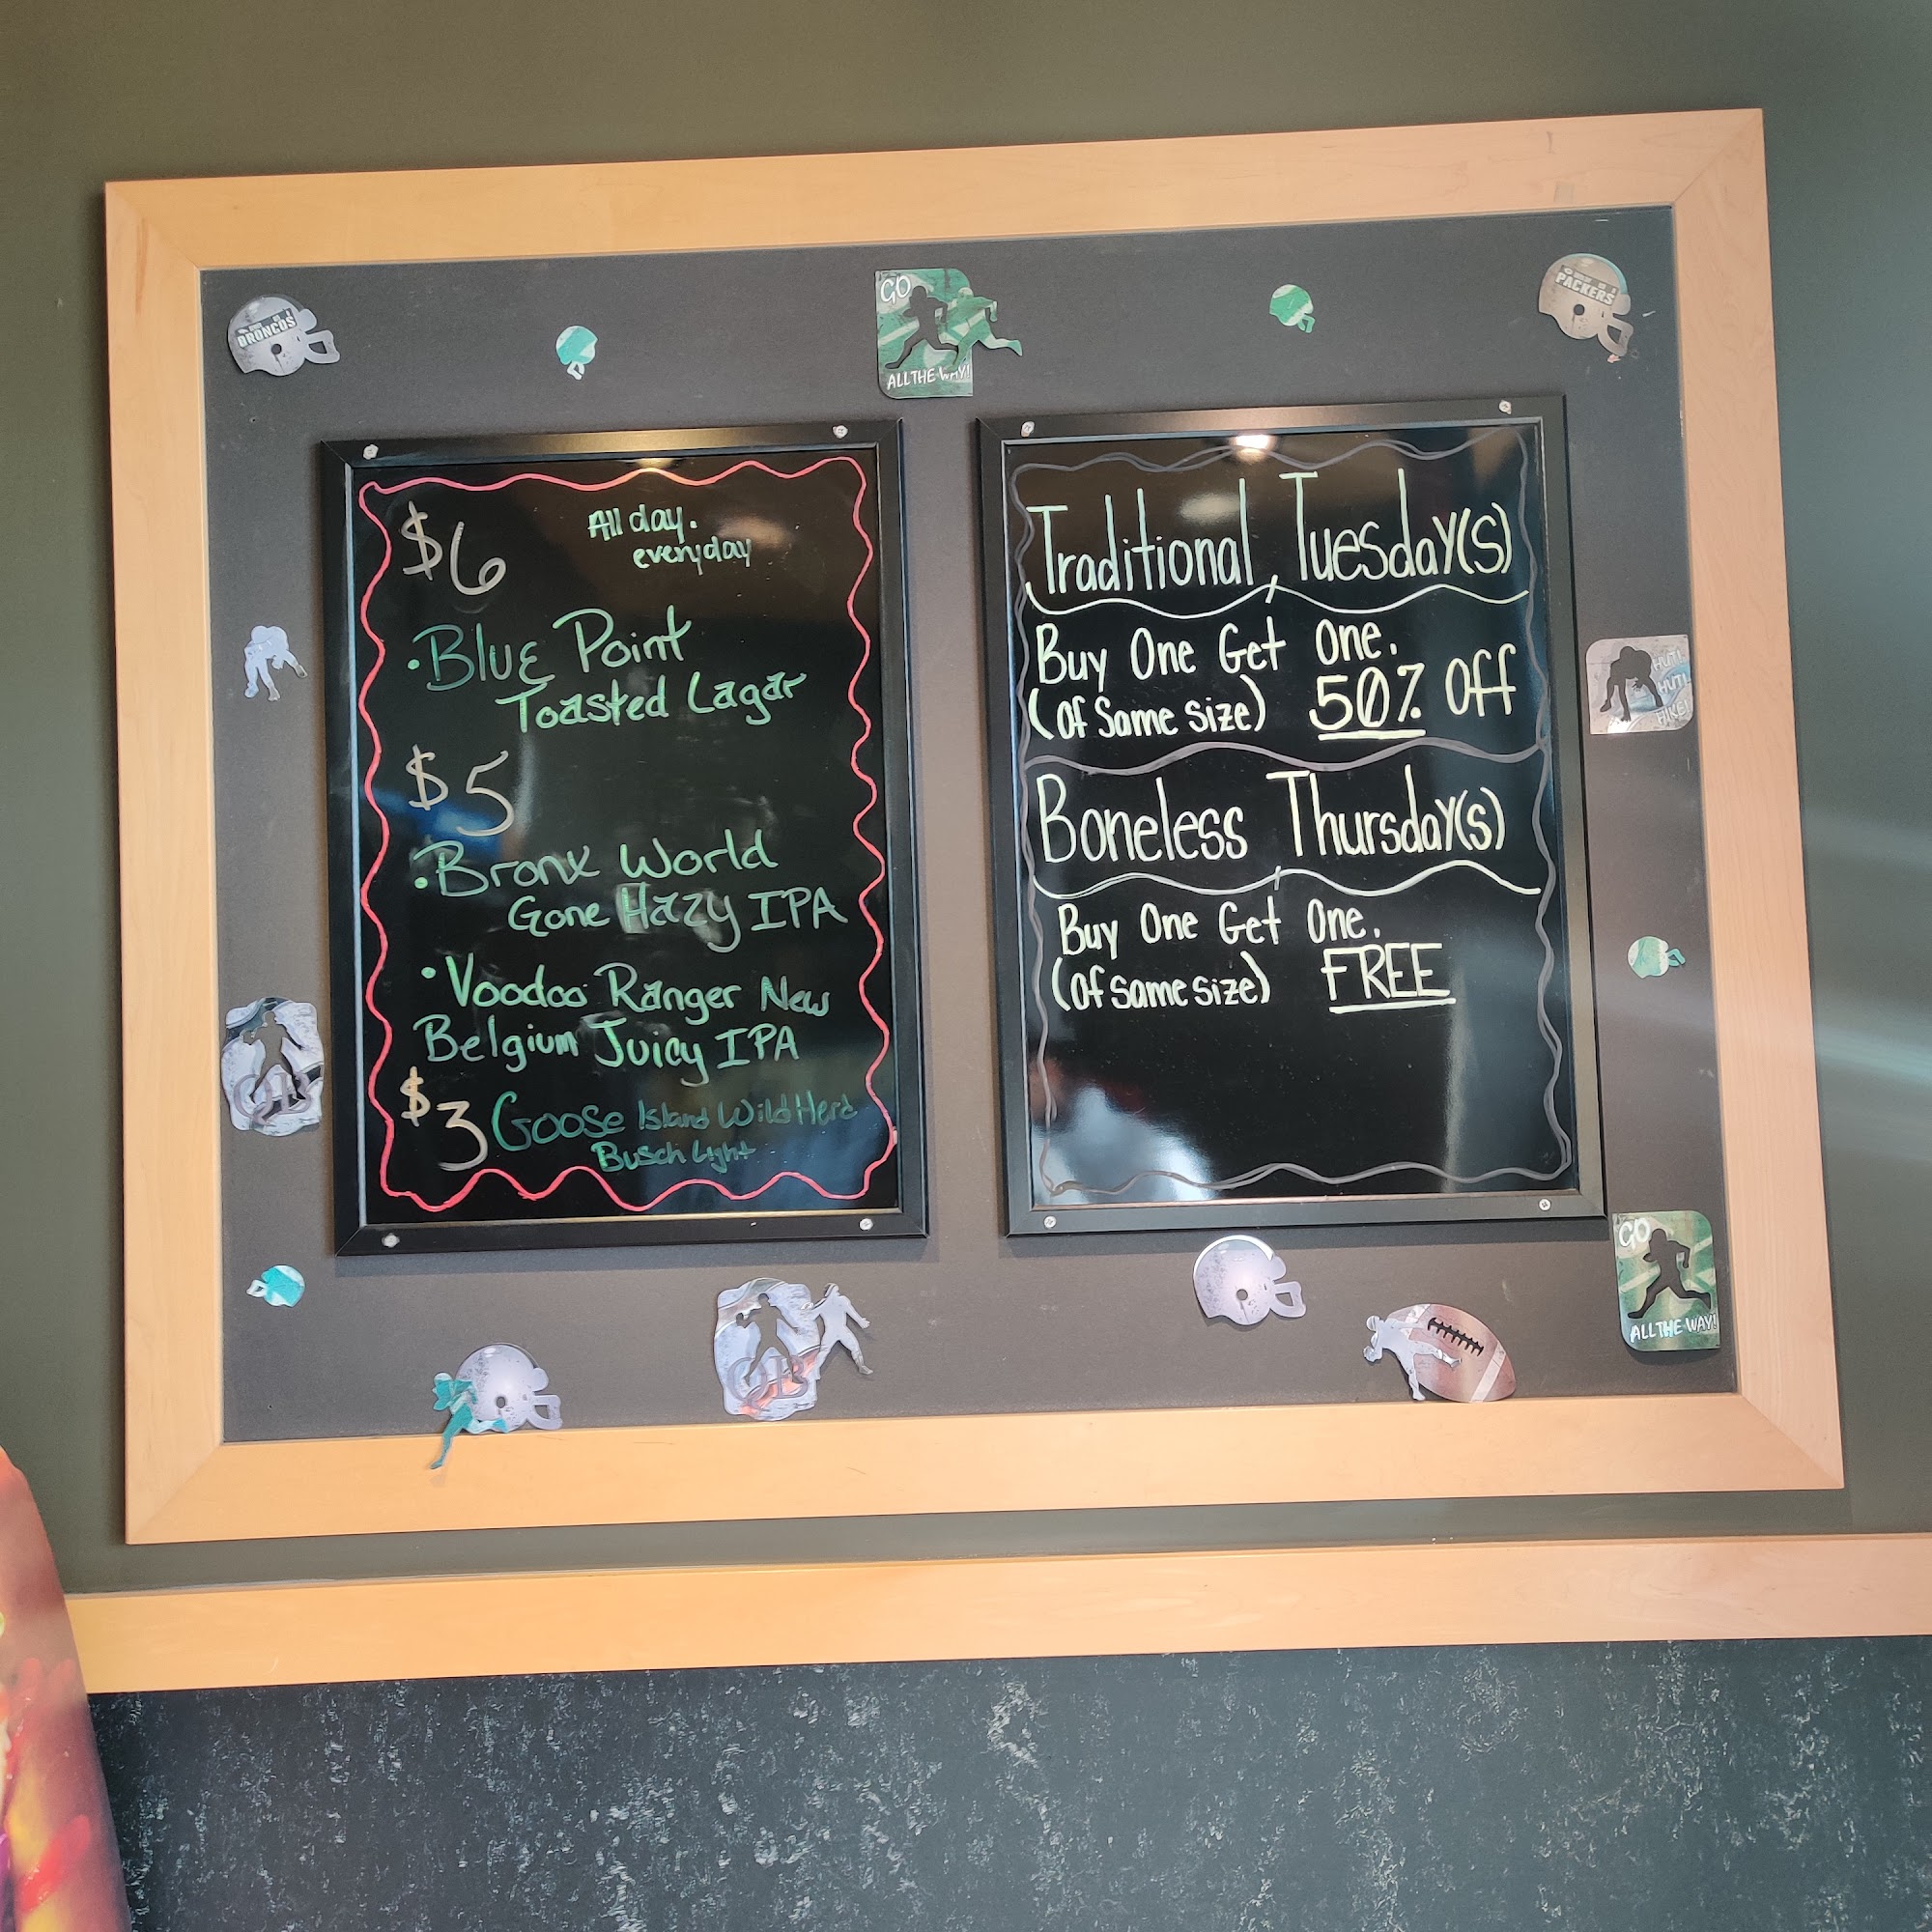 BRONCOS
GO
ALL THE WAY!
PACKERS
$6
All day.
everyday
• Blue Point
Toasted Lagar
$5
• Bronx World
Gone Hazy IPA
• Voodoo Ranger New
Belgium Juicy IPA
$3 Goose Island Wild Herd
Busch Light
Traditional Tuesday(s)
Buy One Get One.
(Of Same Size) 50% Off
Boneless Thursday(s)
Buy One Get One.
(Of same size) FREE
HUT!
HUT!
HIKE!
QB
QB
GO
ALL THE WAY!